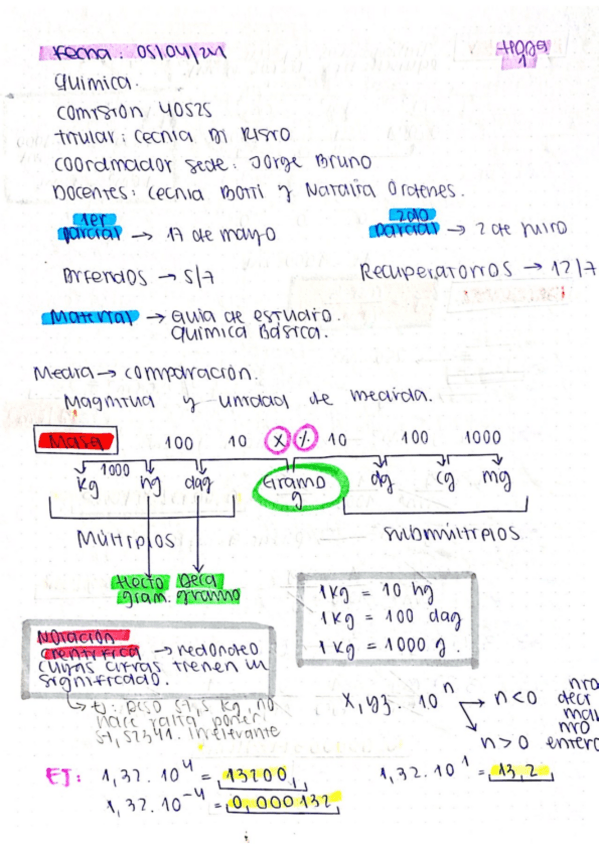 Fecha: 05/04/24
Hoja 1
Química.
Comisión 40525
Titular: Cecilia Di Risio
Coordinador sede: Jorge Bruno
Docentes: Cecilia Botti y Natalia Ordenes.
1er parcial → 17 de mayo
2do parcial → 2 de julio
Diferidos → 5/7
Recuperatorios → 12/7
Material → Guía de estudio química básica.
Medir → comparación.
Magnitud y unidad de medida.
Masa 1000 100 10 × ÷ 10 100 1000
kg hg dag Gramo g dg cg mg
Múltiplos
submúltiplos
Hecto gram. Deca gramo
1kg = 10 hg
1kg = 100 dag
1kg = 1000 g.
Notación científica → redondeo
cuyas cifras tienen un
significado.
↳ ej: peso 51,5 kg, no
hace falta poner:
51,52341. Irrelevante
x,yz . 10ⁿ → n<0 nro
n>0 entero
EJ: 1,32 . 10⁴ = 13200,
1,32 . 10¹ = 13,2
1,32 . 10⁻⁴ = 0,000132